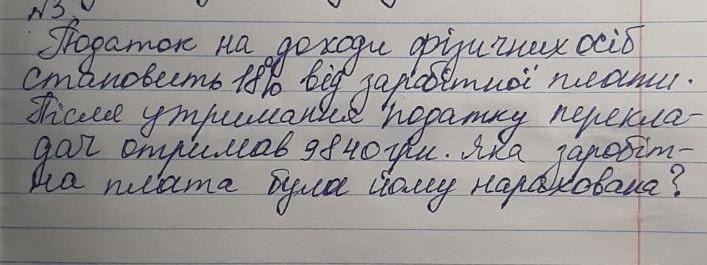 №3
Податок на доходи фізичних осіб
становить 18% від заробітної плати.
Після утримання податку перекла-
дач отримав 9840грн. Яка заробіт-
на плата була йому нарахована?